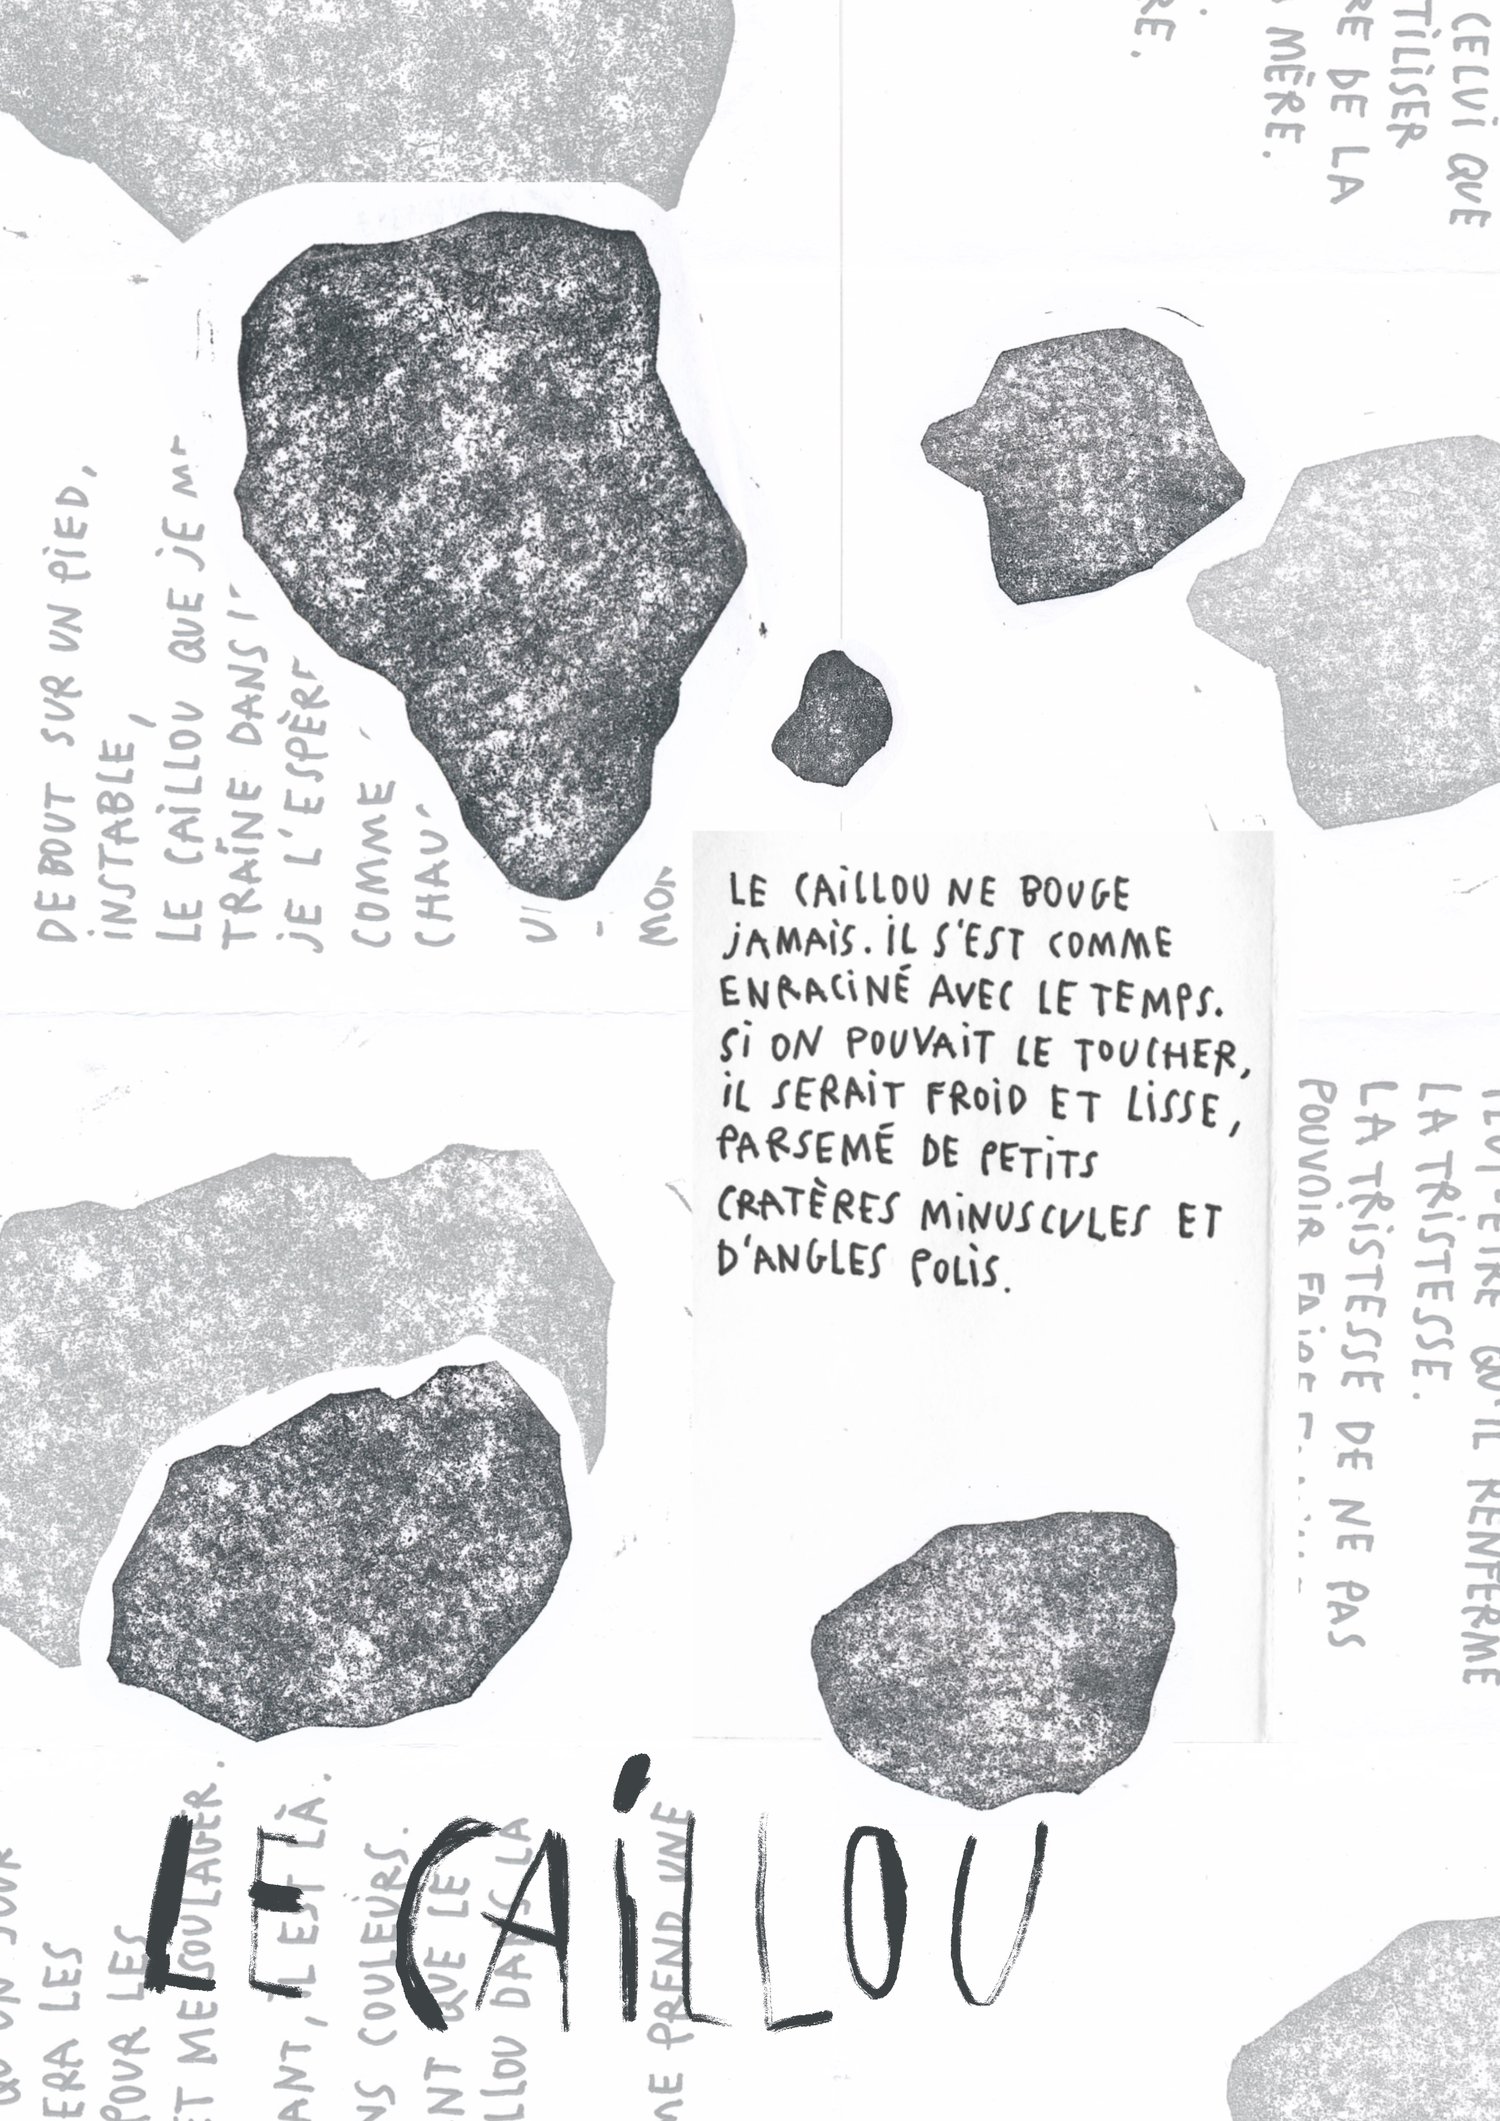 CELUI QUE
TILISER
RE DE LA
MÈRE.
RE.
DEBOUT SUR UN PIED,
INSTABLE,
LE CAILLOU QUE JE ME
TRAÎNE DANS
JE L'ESPÈRE
COMME
CHAU
MON
LE CAILLOU NE BOUGE
JAMAIS. IL S'EST COMME
ENRACINÉ AVEC LE TEMPS.
SI ON POUVAIT LE TOUCHER,
IL SERAIT FROID ET LISSE,
PARSEMÉ DE PETITS
CRATÈRES MINUSCULES ET
D'ANGLES POLIS.
PEUT-ÊTRE QU'IL RENFERME
LA TRISTESSE.
LA TRISTESSE DE NE PAS
POUVOIR FAIRE
ERA LES
POUR LES
ET ME SOULAGER.
ANT, IL EST LÀ.
NS COULEURS.
ANT QUE LE
LLOU DANS LA
ME PREND UNE
LE CAILLOU